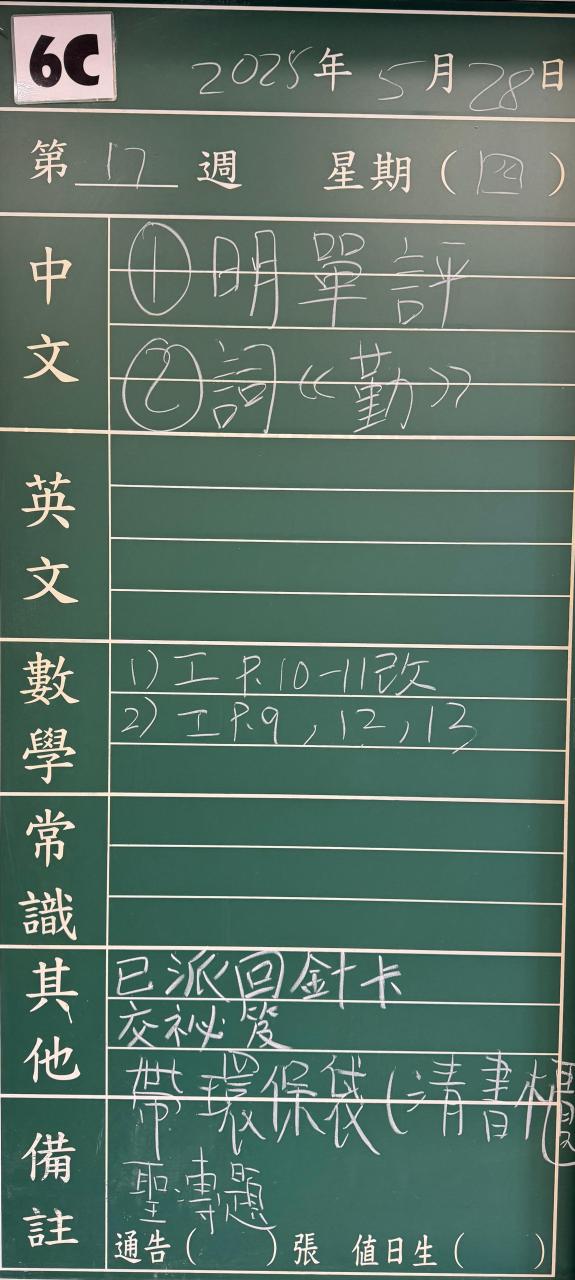 6C
2025年5月28日
第17週 星期(四)
中文
①明單評
②詞《勤》
英文
數學
1) 工 P.10-11改
2) 工 P.9, 12, 13
常識
其他
已派回針卡
交
帶環保袋(清書櫃
備註
聖 題
通告( )張 值日生( )